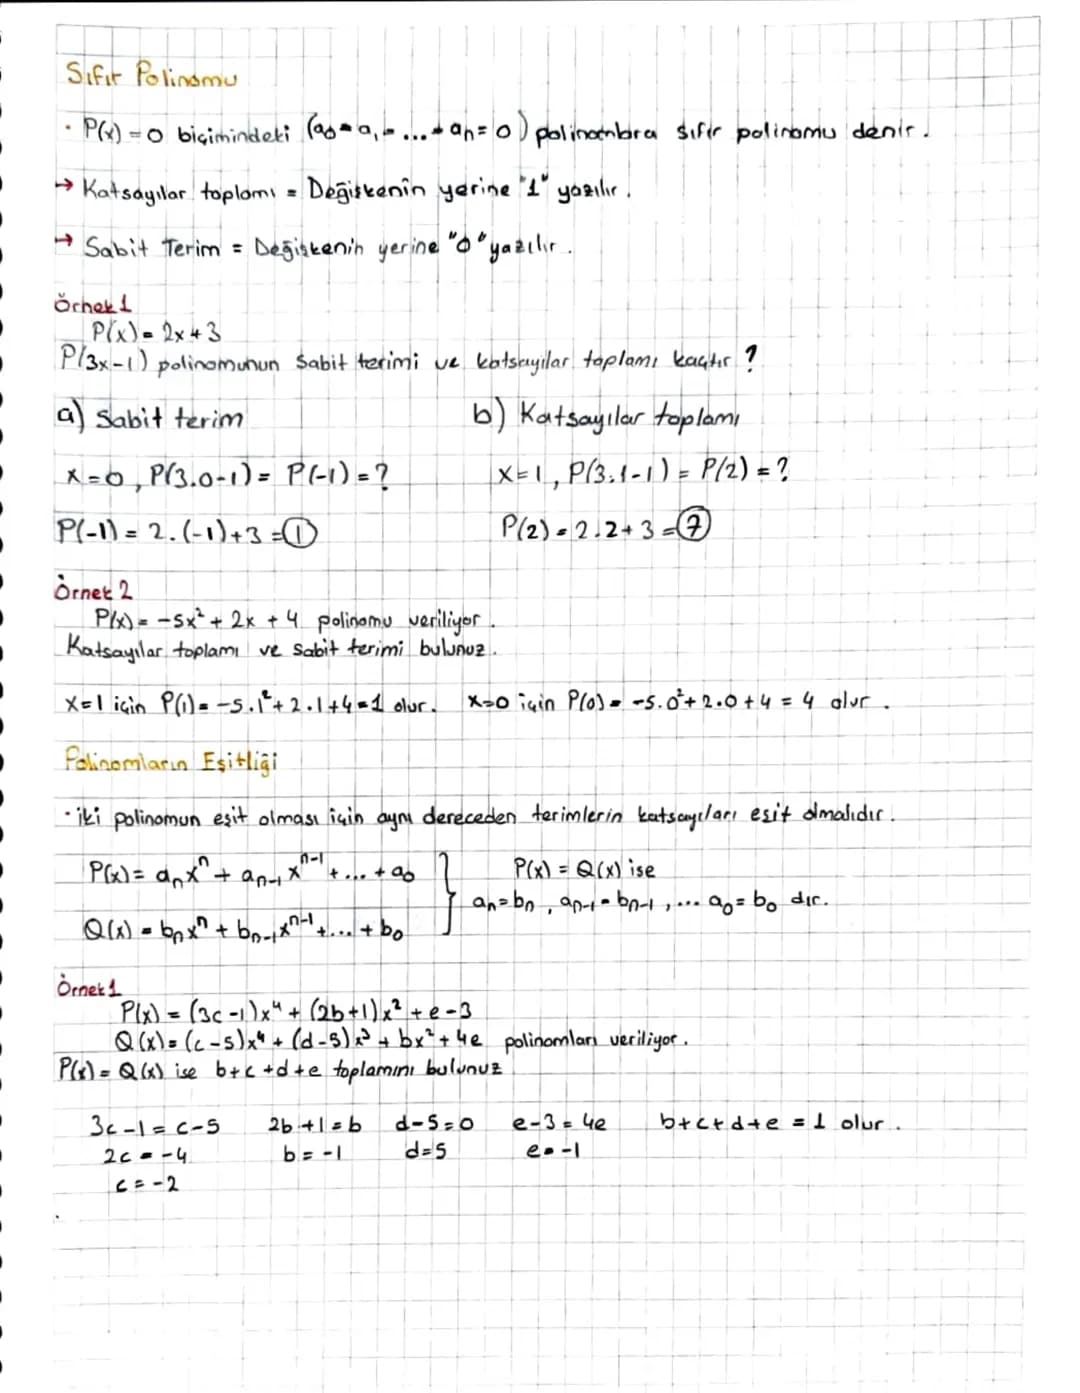 Sıfır Polinomu
· P(x) = 0 biçimindeki (a₀ = a₁ = ... = aₙ = 0) polinomlara sıfır polinomu denir.
→ Katsayılar toplamı = Değişkenin yerine "1" yazılır.
→ Sabit Terim = Değişkenin yerine "0" yazılır.
Örnek 1
P(x) = 2x + 3
P(3x-1) polinomunun sabit terimi ve katsayılar toplamı kaçtır?
a) Sabit terim b) Katsayılar toplamı
x=0, P(3.0-1) = P(-1) = ? x=1, P(3.1-1) = P(2) = ?
P(-1) = 2.(-1)+3 = 1 P(2) = 2.2+3 = 7
Örnek 2
P(x) = -5x² + 2x + 4 polinomu veriliyor.
Katsayılar toplamı ve sabit terimi bulunuz.
x=1 için P(1) = -5.1² + 2.1+4 = 1 olur. x=0 için P(0) = -5.0² + 2.0 + 4 = 4 olur.
Polinomların Eşitliği
· iki polinomun eşit olması için aynı dereceden terimlerin katsayıları eşit olmalıdır.
P(x) = aₙxⁿ + aₙ₋₁xⁿ⁻¹ + ... + a₀ } P(x) = Q(x) ise
aₙ=bₙ, aₙ₋₁=bₙ₋₁, ... a₀=b₀ dır.
Q(x) = bₙxⁿ + bₙ₋₁xⁿ⁻¹ + ... + b₀
Örnek 1
P(x) = (3c-1)x⁴ + (2b+1)x² + e-3
Q(x) = (c-5)x⁴ + (d-5)x³ + bx² + 4e polinomları veriliyor.
P(x) = Q(x) ise b+c+d+e toplamını bulunuz
3c-1 = c-5 2b+1=b d-5=0 e-3=4e b+c+d+e = 1 olur.
2c = -4 b = -1 d=5 e=-1
c = -2